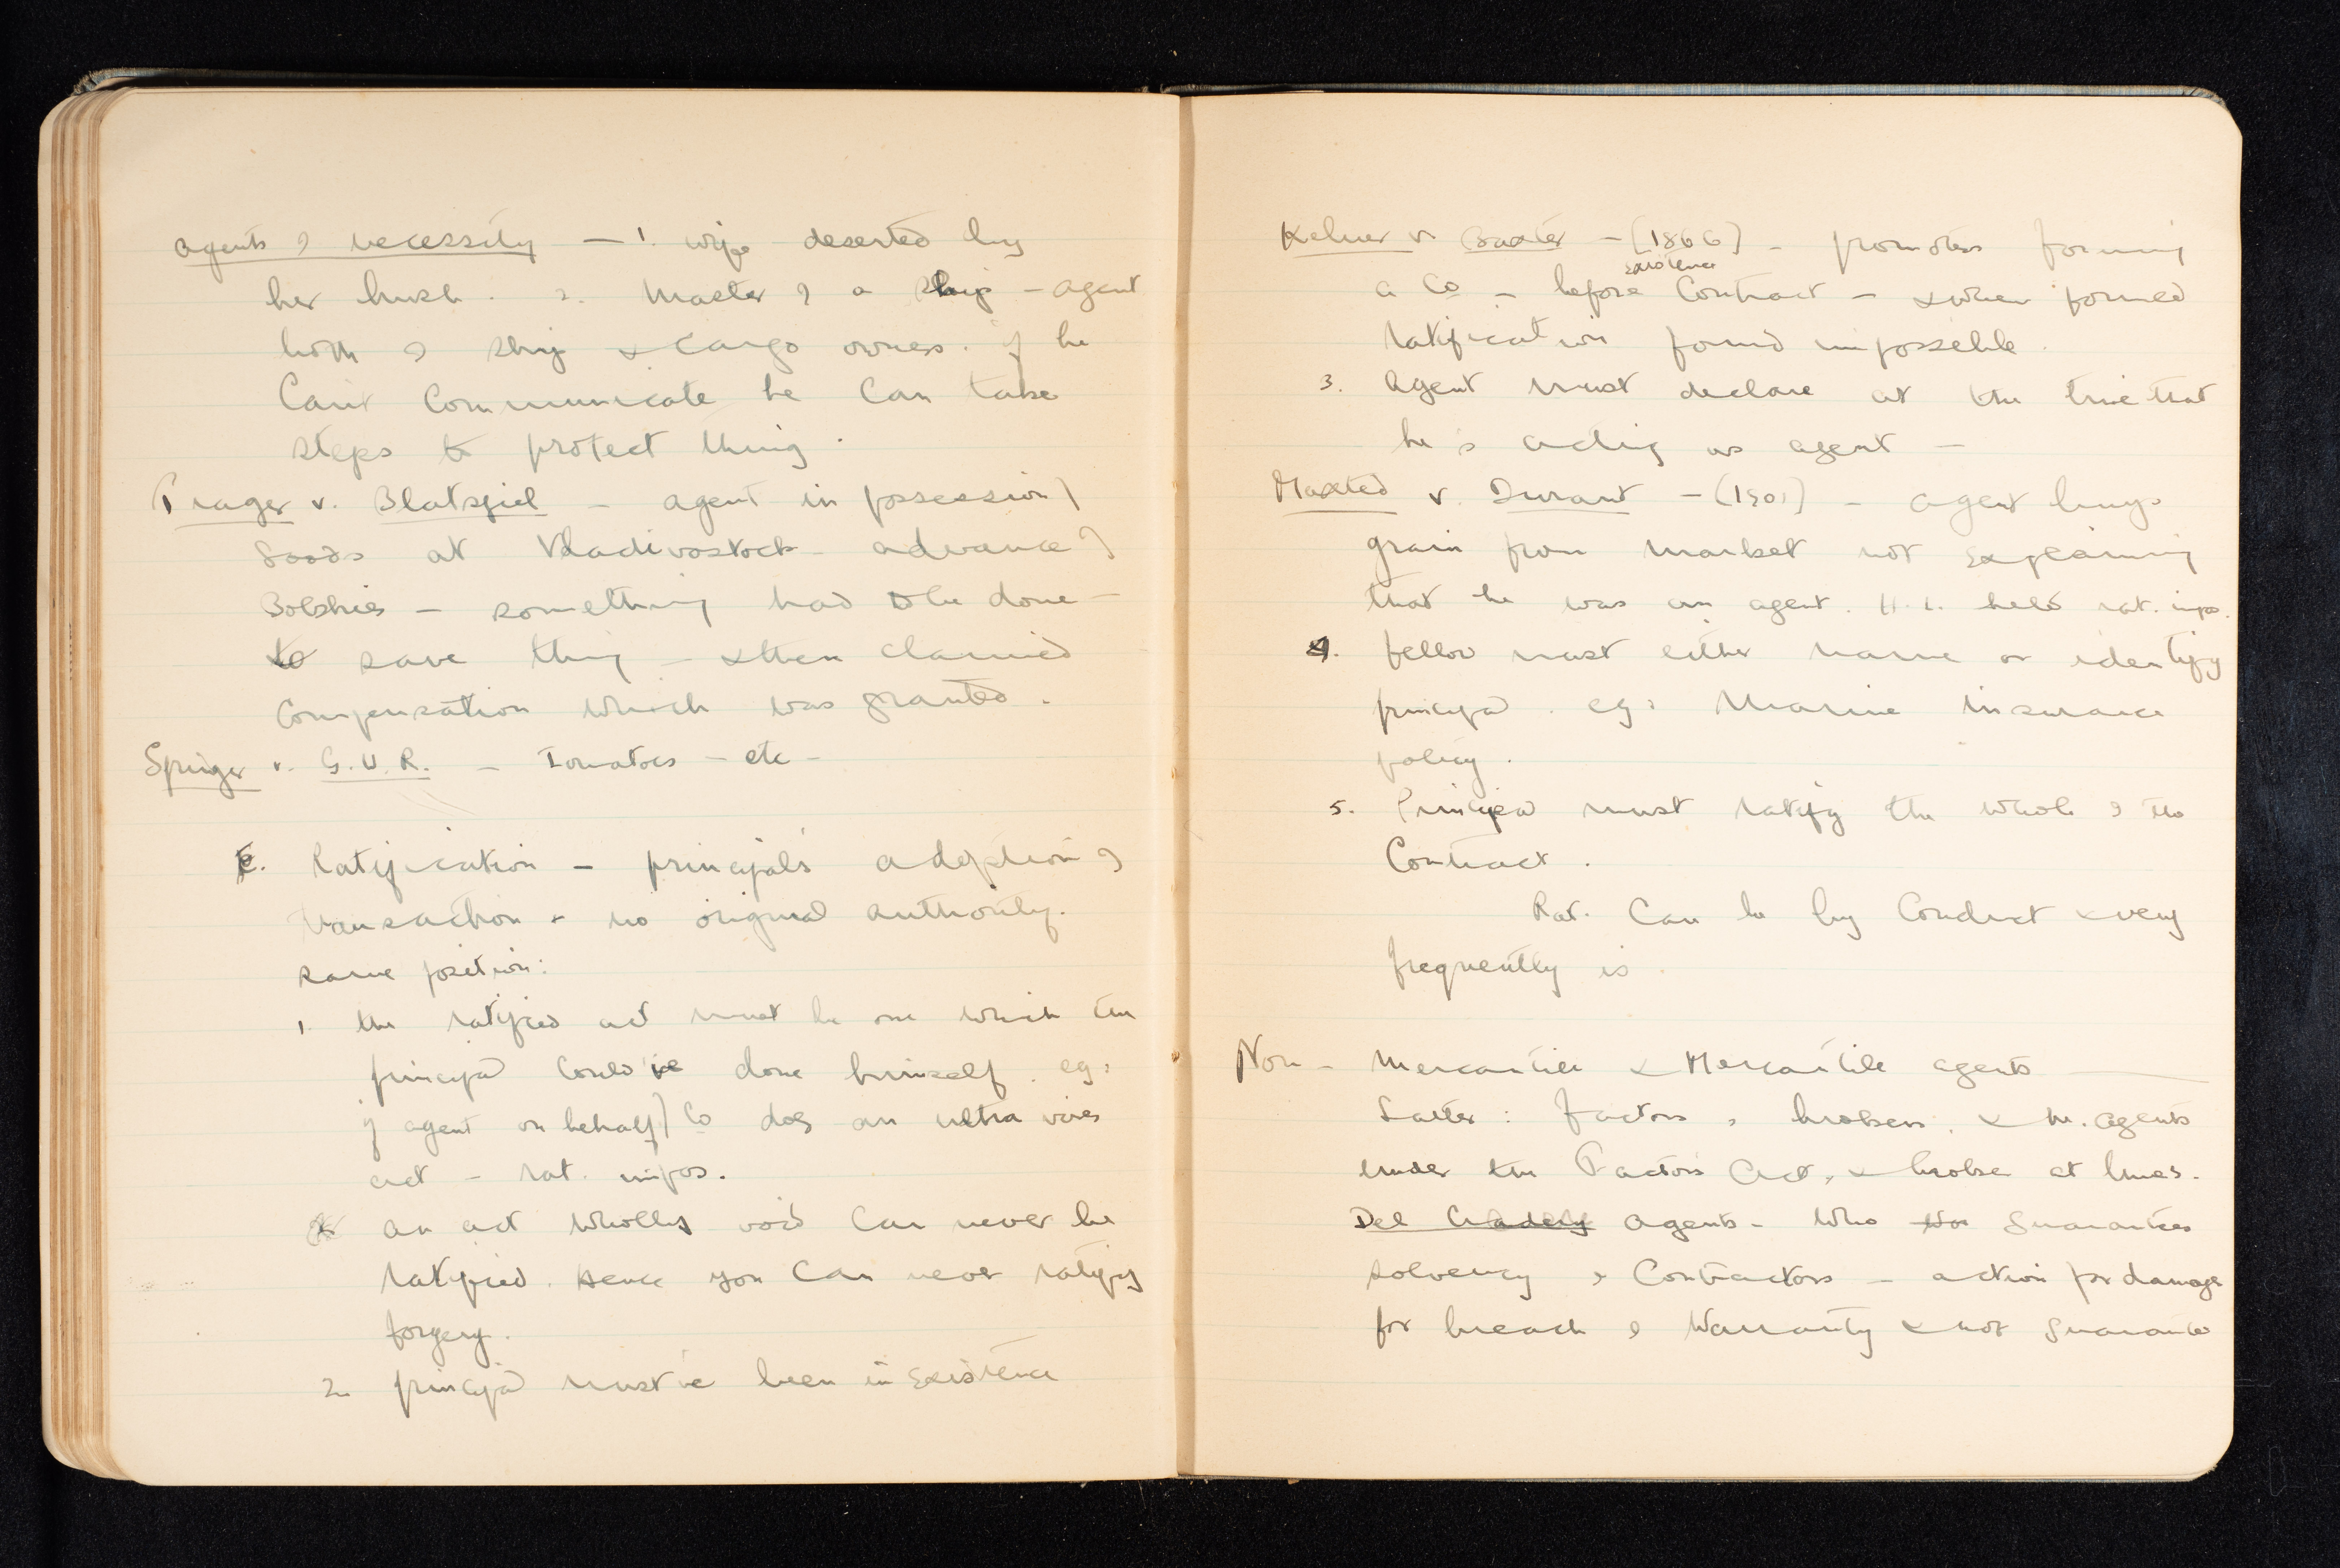 agents of necessity — 1. wife deserted by
her husb. 2. Master of a ship — agent
both of ship & cargo owners. if he
Can't Communicate he Can take
steps to protect thing.
Prager v. Blatspiel — agent in possession of
Goods at Vladivostock — advance of
Bolshies — something had to be done —
to save thing — & then claimed
Compensation which was granted.
Springer v. G.W.R. — Tomatoes — etc —
c. Ratification — principal's adoption of
transaction & no original authority.
same position:
1. the ratified act must be one which the
principal could've done himself. eg:
if agent on behalf of Co does an ultra vires
act — rat. impos.
an act wholly void Can never be
ratified. Hence you Can never ratify
forgery.
2. principal must've been in existence
Kelner v. Baxter — (1866) — promoters forming
a Co — before existence Contract — & when formed
ratification found impossible.
3. Agent must declare at the time that
he's acting as agent —
Maxted v. Durant — (1901) — agent buys
grain from market not explaining
that he was an agent. H.L. held rat. impos.
4. fellow must either name or identify
principal. eg: Marine insurance
policy.
5. Principal must ratify the whole of the
Contract.
Rat. Can be by Conduct & very
frequently is.
Non-Mercantile & Mercantile agents
Latter: factors, brokers, & m. agents
under the Factors Act, & broker at times.
Del agents — who guarantees
solvency of Contractors — action for damage
for breach of Warranty & not Guarantee